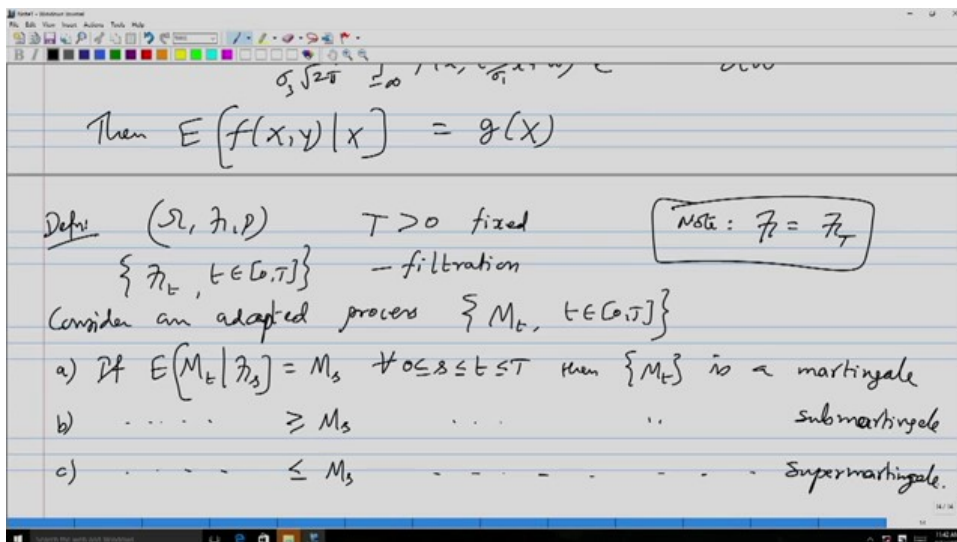 Note1 - Windows Journal
File Edit View Insert Actions Tools Help
B I
σ₃√2π -∞
Then E[f(x,y)|x] = g(X)
Defn: (Ω, ℱ, P) T>0 fixed Note: ℱ = ℱ_T
{ ℱ_t, t∈[0,T]} - filtration
Consider an adapted process { M_t, t∈[0,T]}
a) If E[M_t|ℱ_s] = M_s ∀ 0≤s≤t≤T then {M_t} is a martingale
b) ..... ≥ M_s ... .. submartingale
c) .... ≤ M_s - - - - - - - - Supermartingale.
14/14
Search the web and Windows
11:42 AM